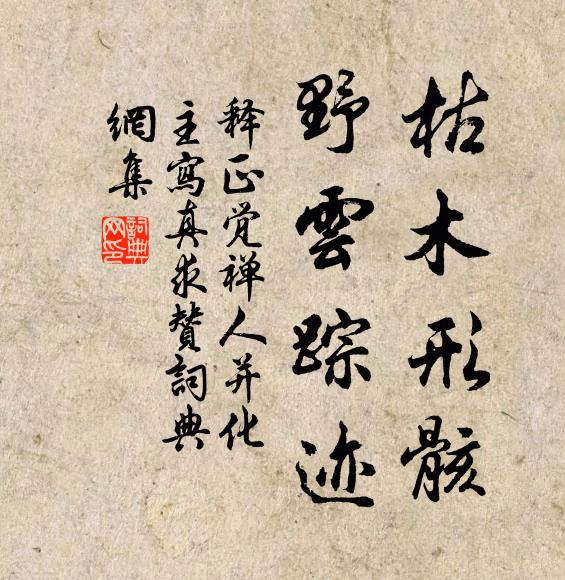 枯木形骸
野雲踪迹
释正觉禅人并化
主寫真求賛詞典
網集
詞典网印